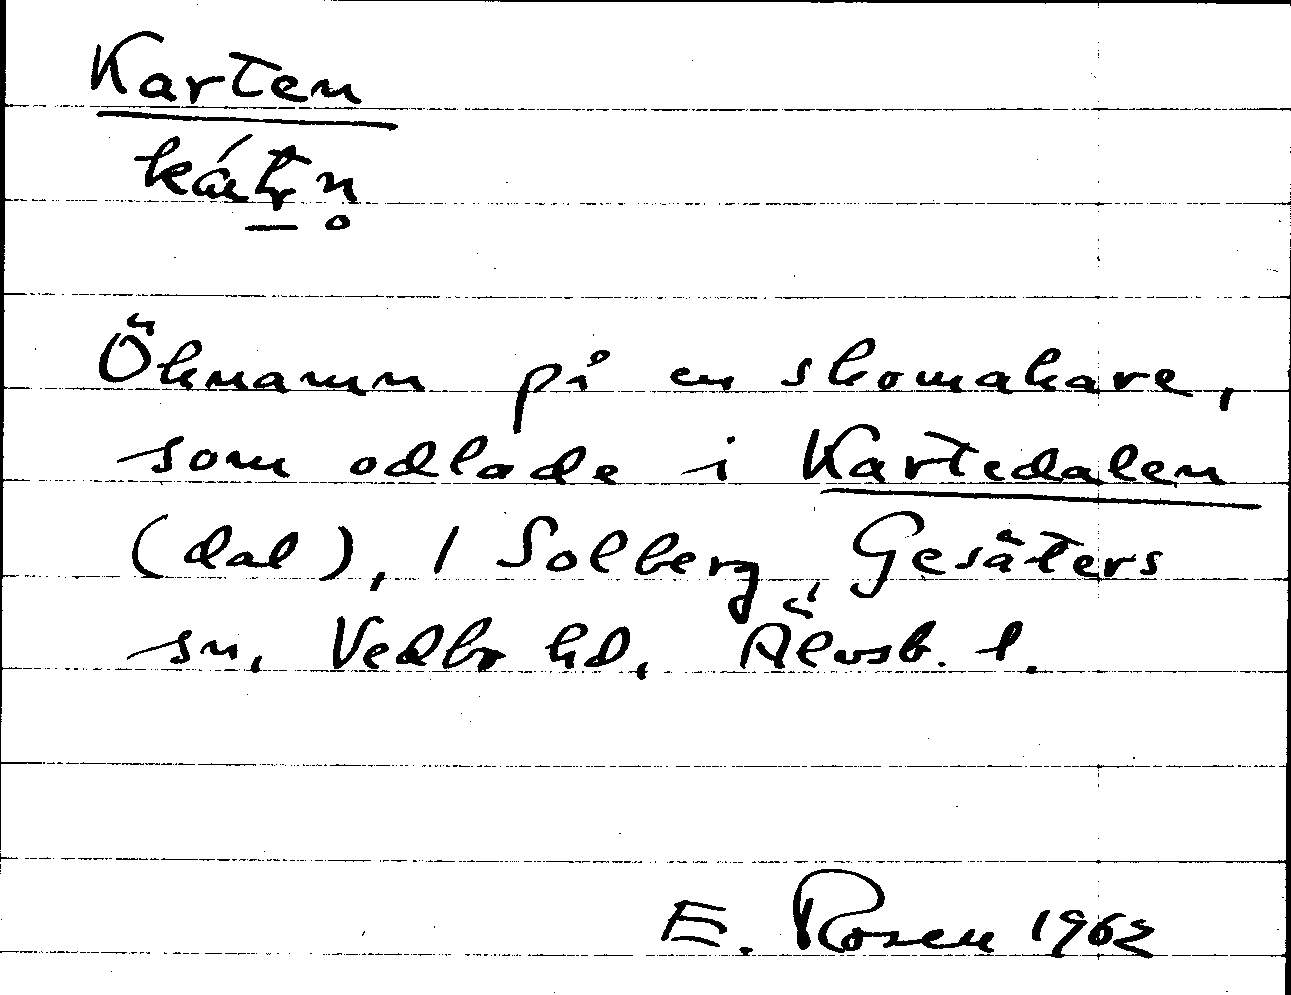 Karten
Öknamn på en skomakare,
som odlade i Kartedalen
(dal), 1 Solberg, Gesäters
sn, Vedbo hd, Älvsb. l.
E. Rosen 1962